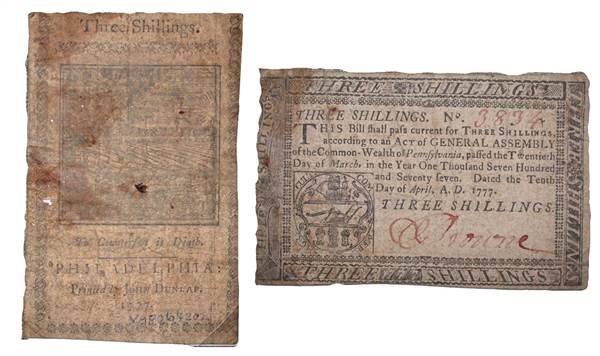 Three Shillings.
To Counterfeit is Death.
PHILADELPHIA:
Printed by JOHN DUNLAP.
1777.
THREE SHILLINGS
THREE SHILLINGS. No. 3834
THIS Bill shall pass current for THREE SHILLINGS,
according to an ACT of GENERAL ASSEMBLY
of the Common-Wealth of Pennsylvania, passed the Twentieth
Day of March, in the Year One Thousand Seven Hundred
and Seventy seven. Dated the Tenth
Day of April, A. D. 1777.
THREE SHILLINGS.
THREE SHILLINGS